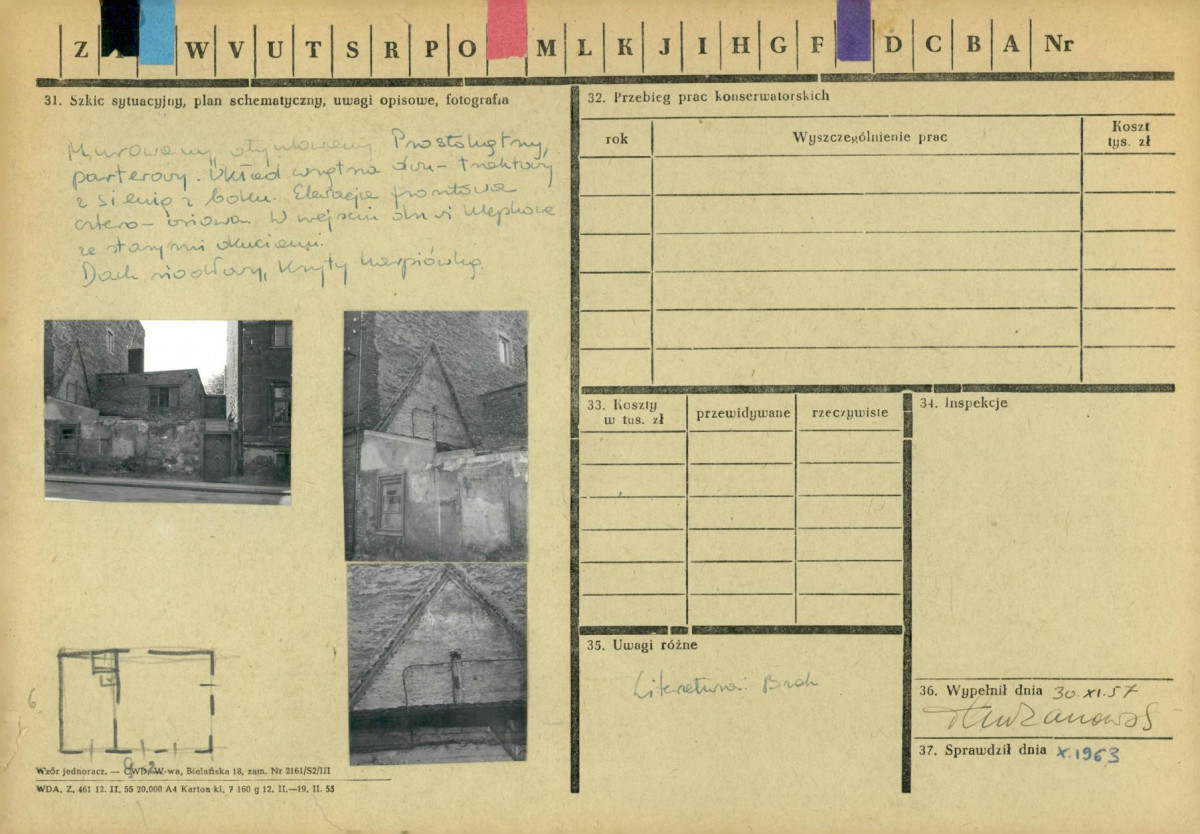 Z W V U T S R P O M L K J I H G F D C B A Nr
31. Szkic sytuacyjny, plan schematyczny, uwagi opisowe, fotografia
Murowany, otynkowany. Prostokątny,
parterowy. Układ wnętrza dwu-traktowy
z sienią z boku. Elewacja frontowa
cztero-osiowa. W wejściu drzwi klepkowe
ze starymi okuciami.
Dach siodłowy, kryty karpiówką.
6
9,2
Wzór jednoracz. — CWD, W-wa, Bielańska 18, zam. Nr 2161/S2/III
WDA. Z. 461 12. II. 55 20.000 A4 Karton kl. 7 160 g 12. II.—19. II. 55
32. Przebieg prac konserwatorskich
rok Wyszczególnienie prac Koszt
tys. zł
33. Koszty
w tys. zł przewidywane rzeczywiste
34. Inspekcje
35. Uwagi różne
Literatura: Brak
36. Wypełnił dnia 30.XI.57
37. Sprawdził dnia X.1963